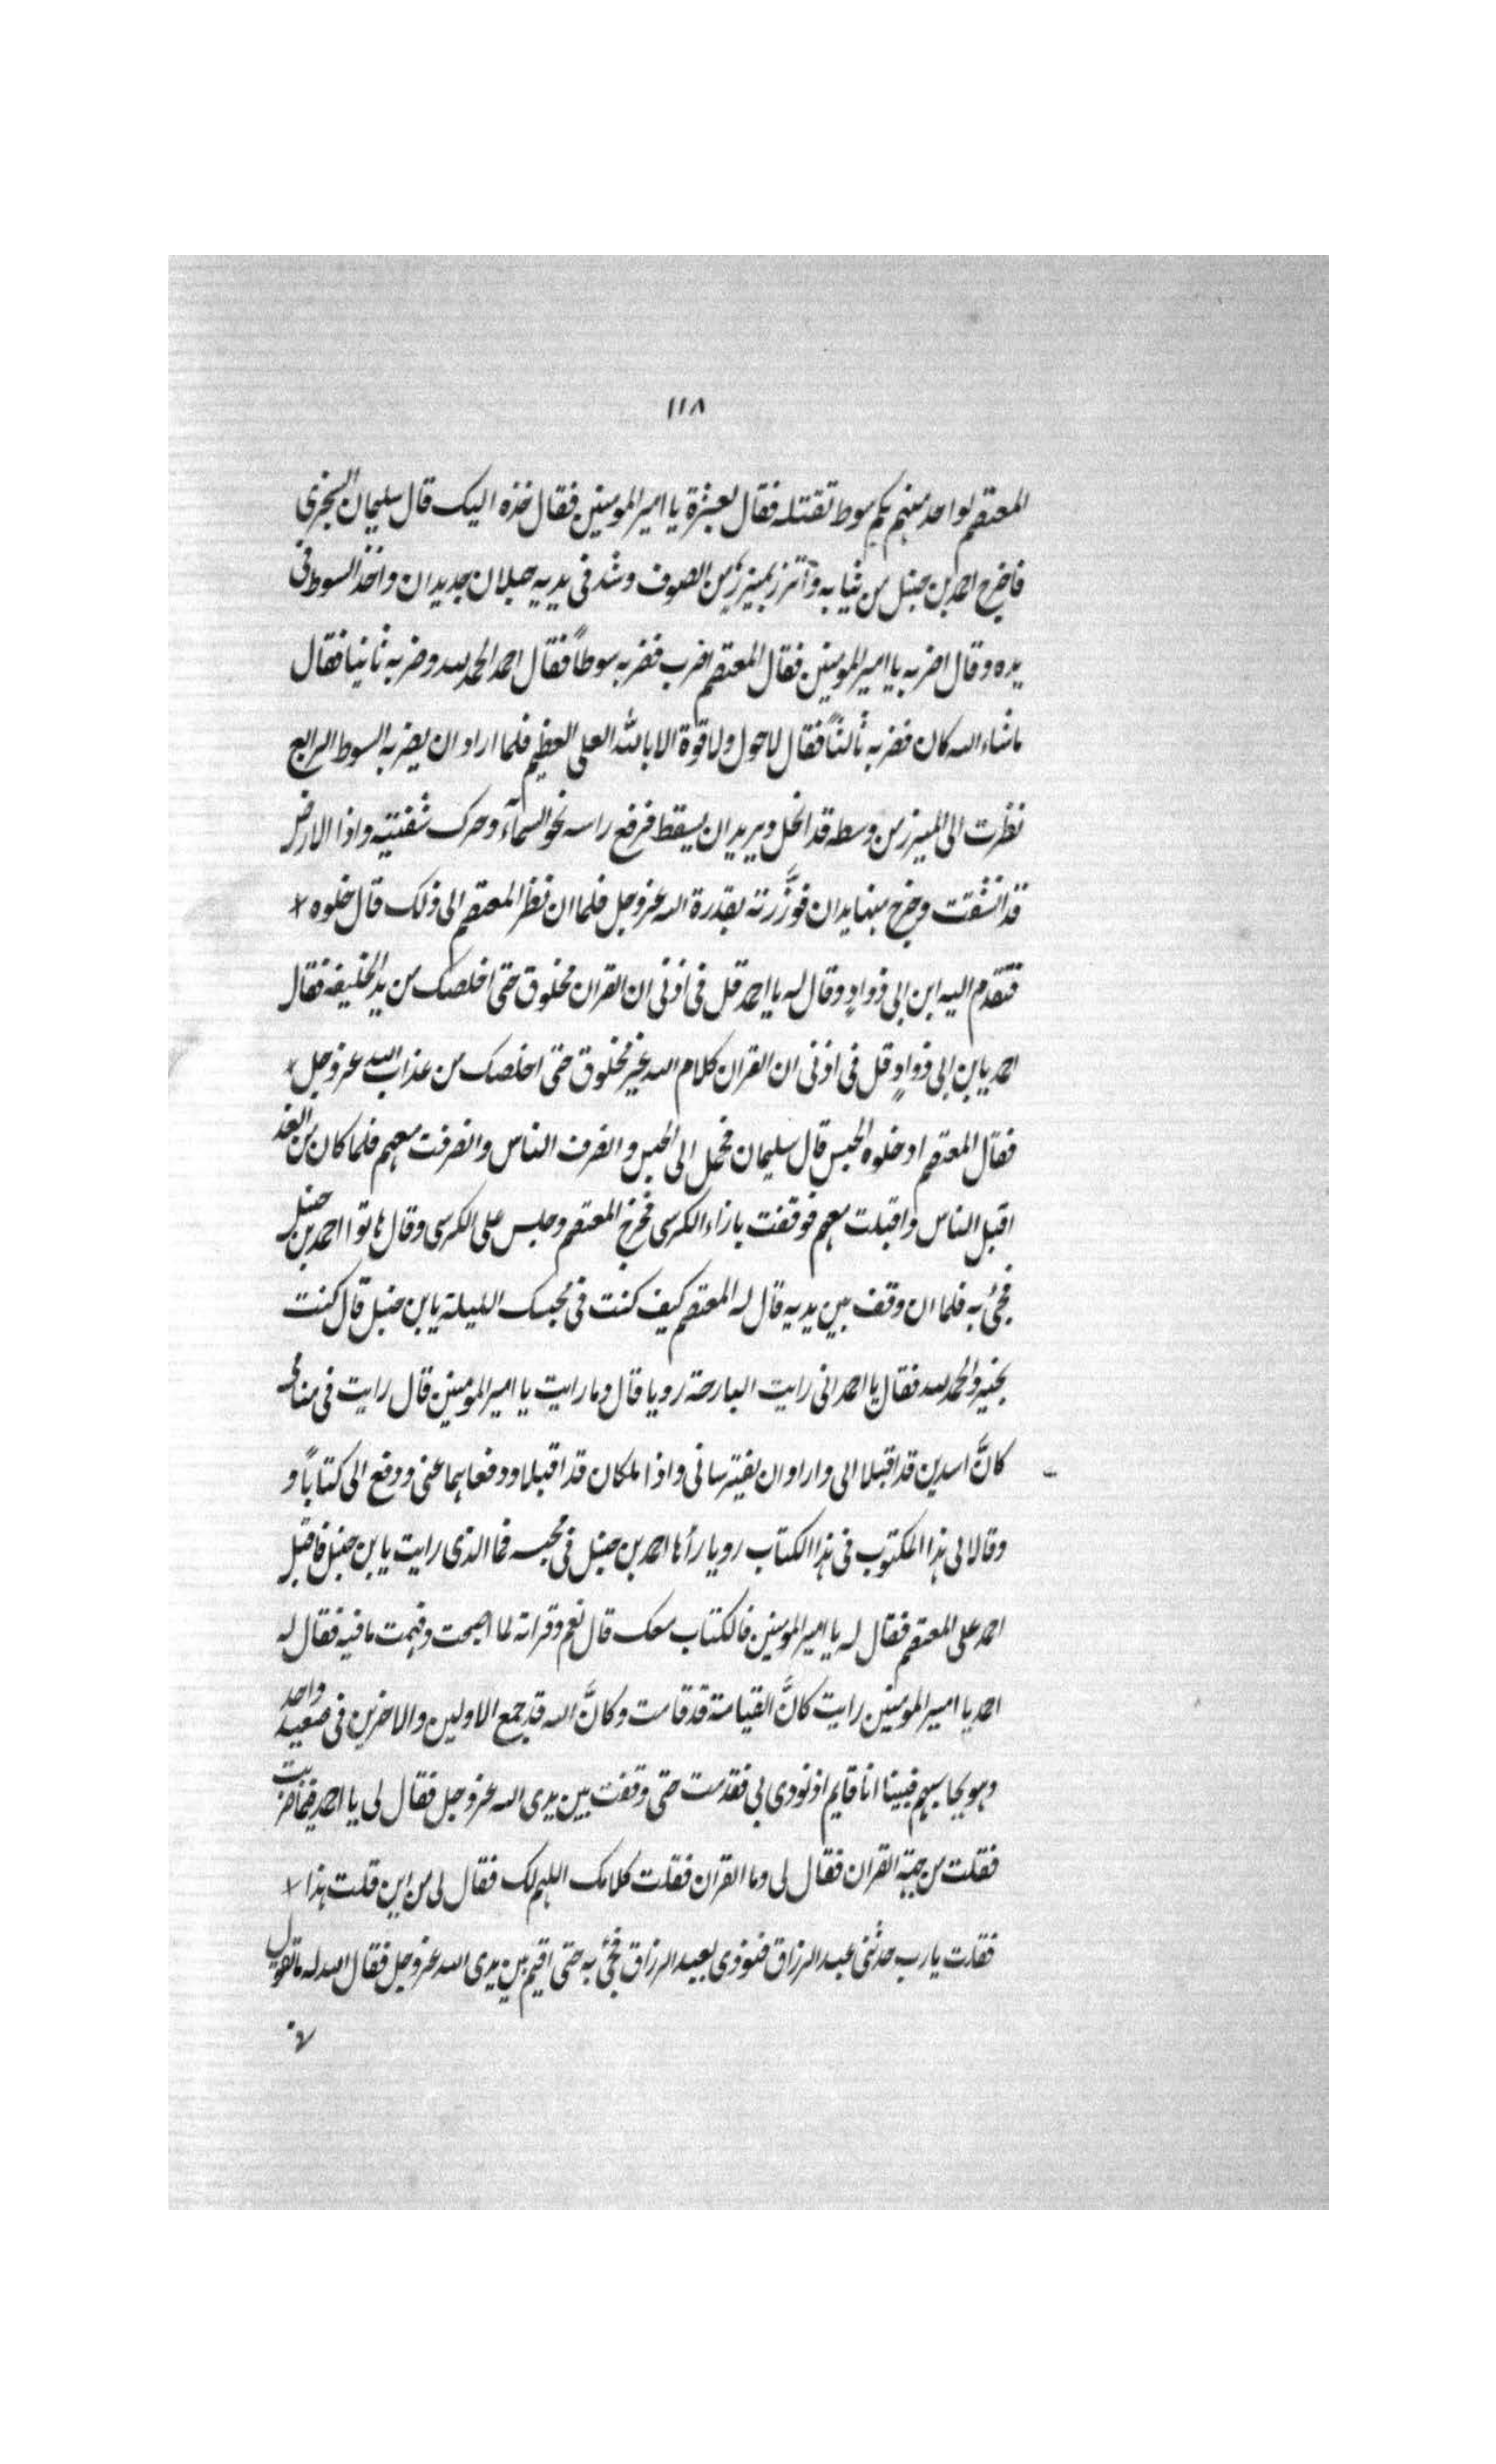 ١١٨
المعتصم لواحد منهم بكم سوط تقتله فقال لعشرة يا امير المومنين فقال خذه اليك قال سليمان السجزى
فاخرج احمد بن حنبل من ثيابه وآتزر بميزرٍ من الصوف وشد فى يديه حبلان جديدان واخذ السوط فى
يده وقال اضربه يا امير المومنين فقال المعتصم اضرب فضربه سوطاً فقال احمد الحمد لله وضربه ثانيا فقال
ماشاء الله كان فضربه ثالثاً فقال لاحول ولا قوة الا بالله العلى العظيم فلما اراد ان يضربه السوط الرابع
نظرت الى الميزر من وسطه قد انحل ويريد ان يسقط فرفع راسه نحو السمآء وحرك شفتيه واذا الارض
قد انشقت وخرج منها يدان فوزّرته بقدرة الله عز وجل فلما ان نظر المعتصم الى ذلك قال خلوه
فتقدم اليه ابن ابى دوادٍ وقال له يا احمد قل فى اذنى ان القران مخلوق حتى اخلصك من يد الخليفه فقال
احمد يابن ابى دوادٍ قل فى اذنى ان القران كلام الله غير مخلوق حتى اخلصك من عذاب الله عز وجل
فقال المعتصم ادخلوه الحبس قال سليمان فحمل الى الحبس وانصرف الناس وانصرفت معهم فلما كان من الغد
اقبل الناس واقبلت معهم فوقفت بازاء الكرسى فخرج المعتصم وجلس على الكرسى وقال هاتوا احمد بن حنبل
فجئ به فلما ان وقف بين يديه قال له المعتصم كيف كنت فى محبسك الليلة يابن حنبل قال كنت
بخير والحمد لله فقال يا احمد انى رايت البارحة رويا قال وما رايت يا امير المومنين قال رايت فى منامى
كانَّ اسدين قد اقبلا الى وارادا ان يفترسانى واذا ملكان قد اقبلا ودفعاهما عنى ودفع الى كتاباً و
وقالا لى هذا المكتوب فى هذا الكتاب رويا رأها احمد بن حنبل فى محبسه فما الذى رايت يابن حنبل فاقبل
احمد على المعتصم فقال له يا امير المومنين فالكتاب معك قال نعم وقراته لما اصبحت وفهمت مافيه فقال له
احمد يا امير المومنين رايت كانَّ القيامة قد قامت وكانَّ الله قد جمع الاولين والاخرين فى صعيد واحد
وهو يحاسبهم فبينا انا قايم اذ نودى بى فقدمت حتى وقفت بين يدى الله عز وجل فقال لى يا احمد فيما ضربت
فقلت من جهة القران فقال لى وما القران فقلت كلامك اللهم لك فقال لى من اين قلت هذا
فقلت يارب حدثنى عبد الرزاق فنودى بعبد الرزاق فجئ به حتى اقيم بين يدى الله عز وجل فقال الله له ما تقول